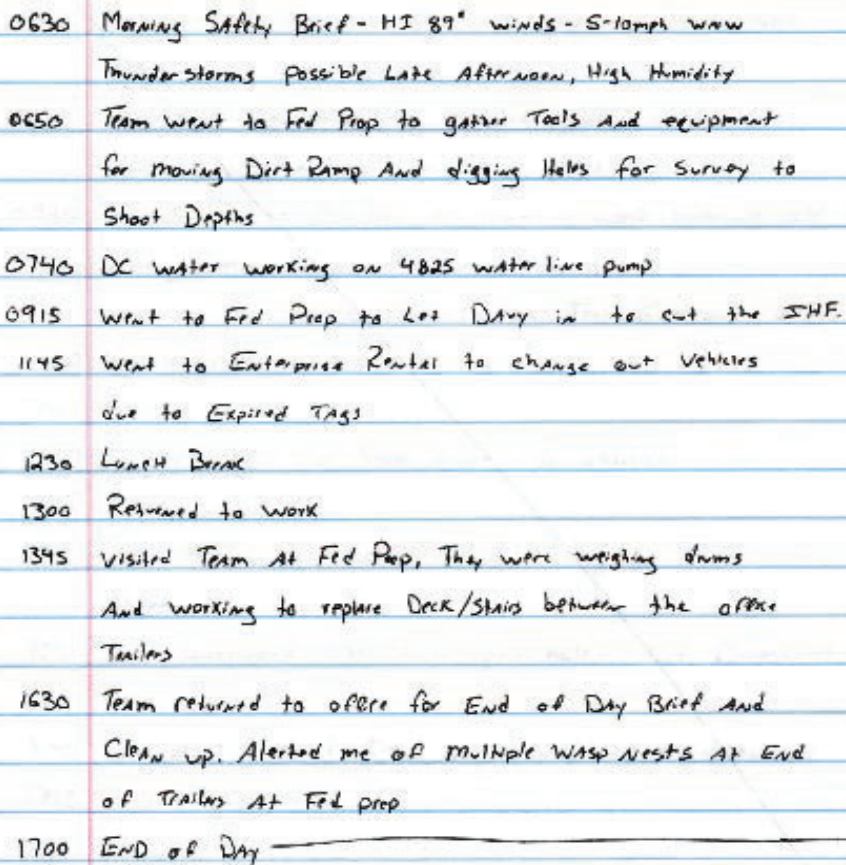 0630 Morning Safety Brief - HI 89° winds - 5-10mph WNW
Thunderstorms possible Late Afternoon, High Humidity
0650 Team went to Fed Prop to gather Tools And equipment
for moving Dirt Ramp And digging Holes for Survey to
Shoot Depths
0740 DC Water working on 4825 water line pump
0915 Went to Fed Prop to Let Davy in to cut the IHF.
1145 Went to Enterprise Rental to change out vehicles
due to Expired Tags
1230 Lunch Break
1300 Returned to work
1345 Visited Team At Fed Prop, They were weighing drums
And working to replace Deck/Stairs between the office
Trailers
1630 Team returned to office for End of Day Brief And
Clean up. Alerted me of multiple Wasp Nests At End
of Trailers At Fed prop
1700 END of Day